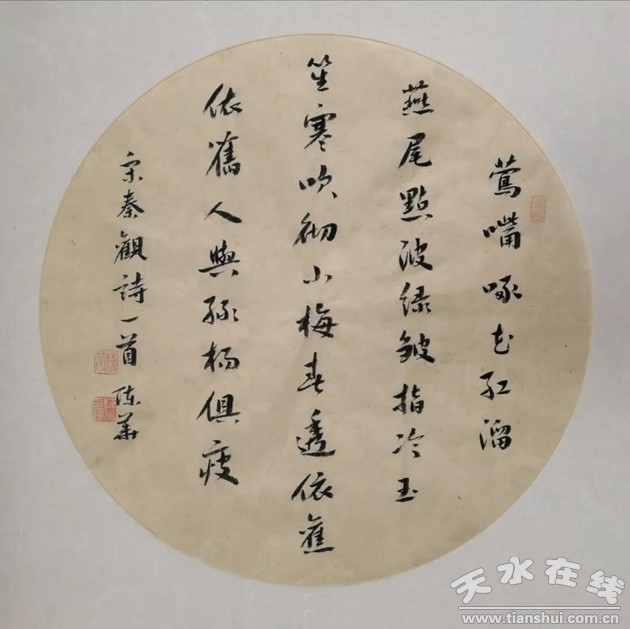 莺嘴啄花红溜
燕尾點波绿皱指冷玉
笙寒吹彻小梅春透依舊
依舊人與绿杨俱瘦
宋秦觀詩一首 陈华
天水在线
www.tianshui.com.cn